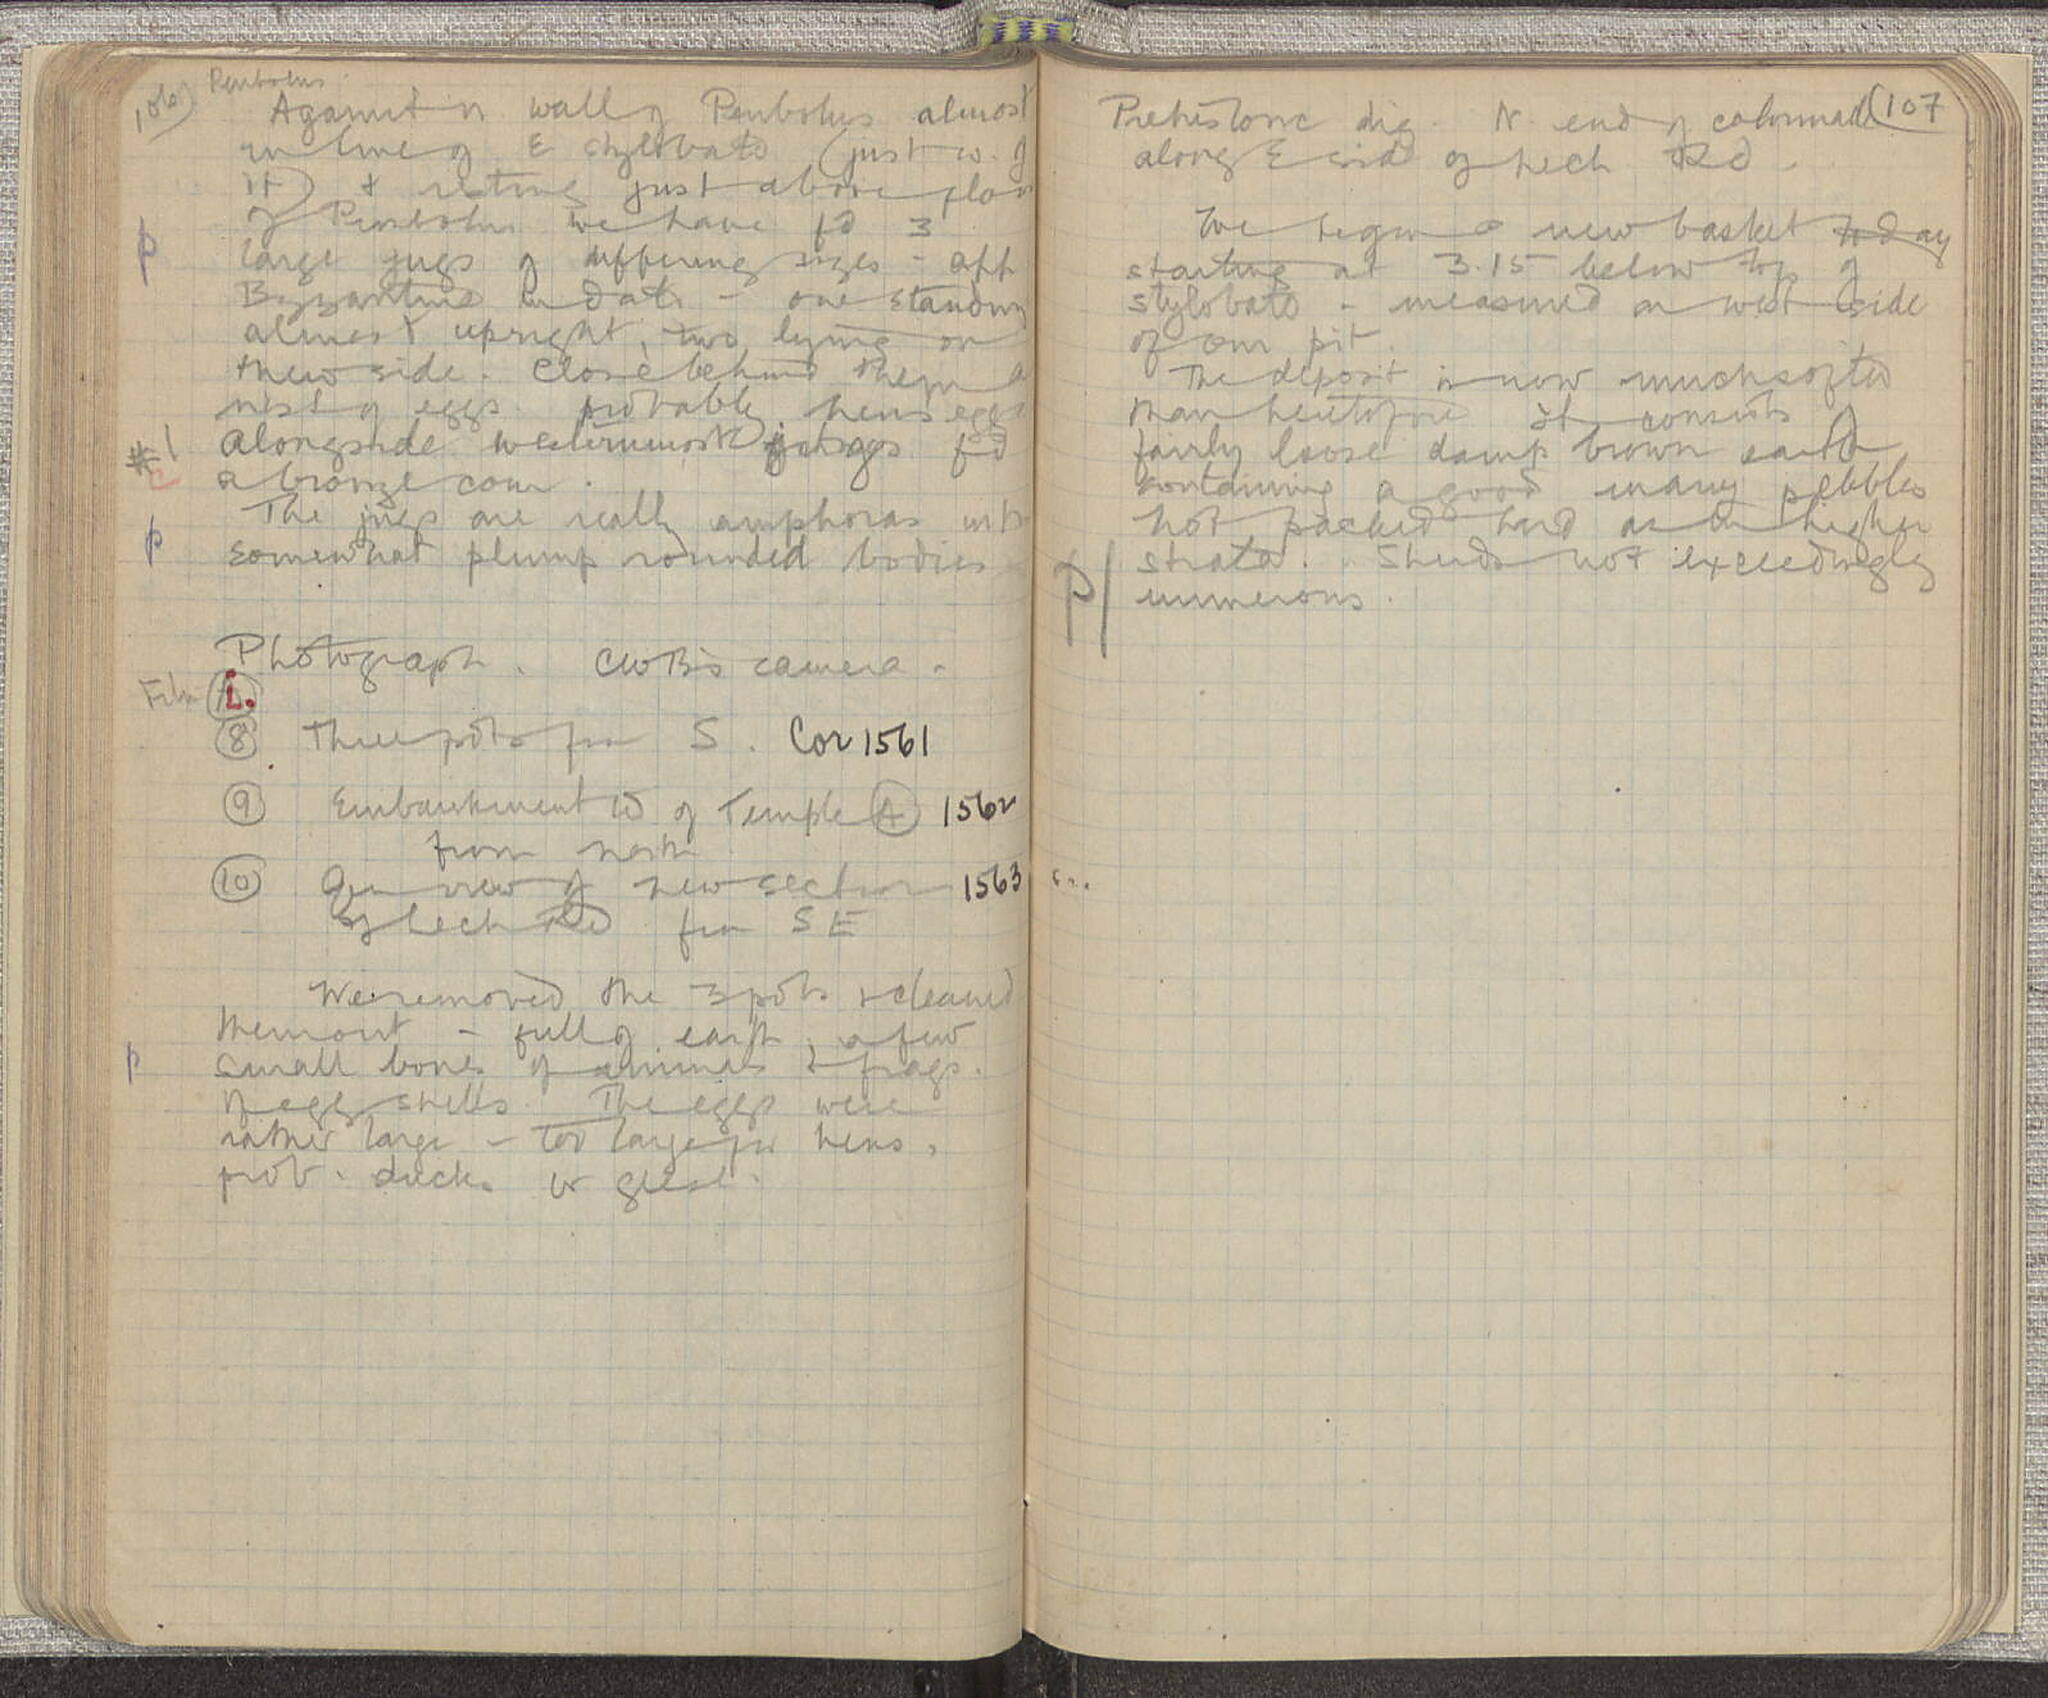 106) Peribolus
Against n wall of Peribolus almost
in line of E stylobate (just w. of
it) & resting just above floor
of Peribolus we have fd 3
p large jugs of differing sizes - app
Byzantine in date - one standing
almost upright, two lying on
their side. Close behind them a
nest of eggs probably hens eggs
#1 Alongside westernmost fd
a bronze coin.
The jugs are really amphoras with
p somewhat plump rounded bodies
Photograph. CWB's camera.
Film i.
8 Three pots from S. Cor 1561
9 Embankment W of Temple A 1562
from north
10 Gen view of new section 1563
of Lech Rd from SE
We removed the 3 pots & cleaned
them out - full of earth, a few
p small bones of animals & frags.
of egg shells. The eggs were
rather large - too large for hens,
prob. ducks or geese.
Prehistoric dig. N. end of colonnade (107
along E side of Lech Rd.
We began a new basket today
starting at 3.15 below top of
stylobate - measured on west side
of our pit.
The deposit is now much softer
than heretofore It consists of
fairly loose damp brown earth
containing a good many pebbles
not packed hard as in higher
strata. Sherds not exceedingly
p numerous.